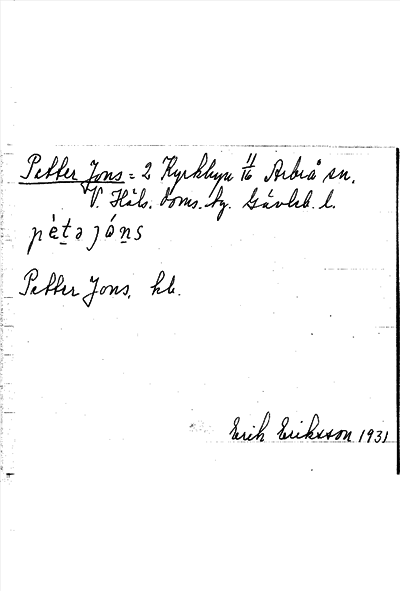 Petter Jons = 2 Kyrkbyn 11/16 Arbrå sn.
V. Häls. doms. hg. Gävleb. l.
pètə jóns
Petter Jons, hb.
Erik Eriksson 1931